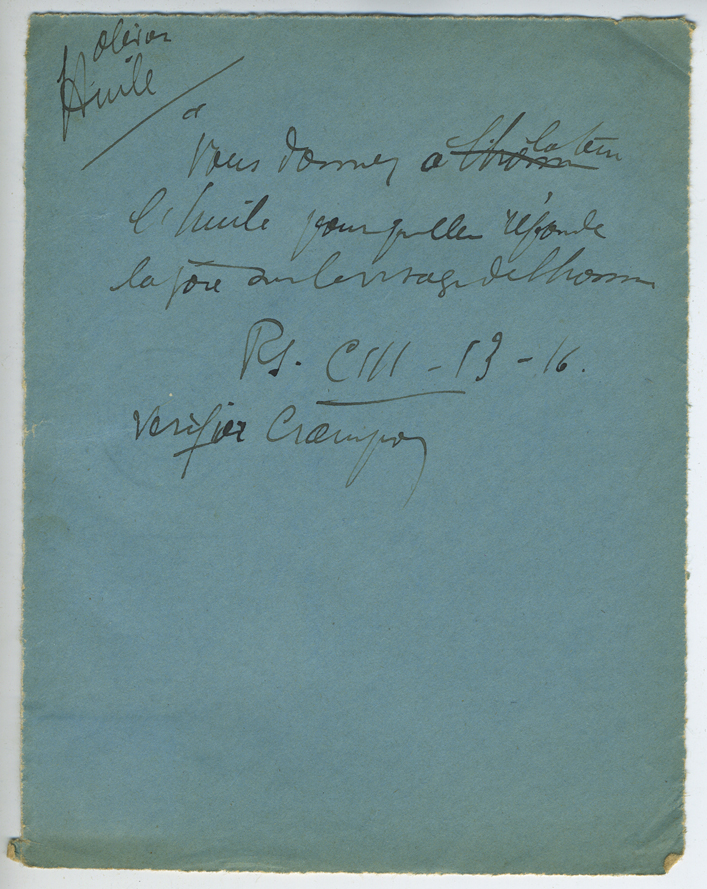 olivier
Huile
"Vous donnez à l'homme la terre
l'huile pour qu'elle répande
la joie sur le visage de l'homme
Ps. CIII - 13 - 16.
Verifier Crampon